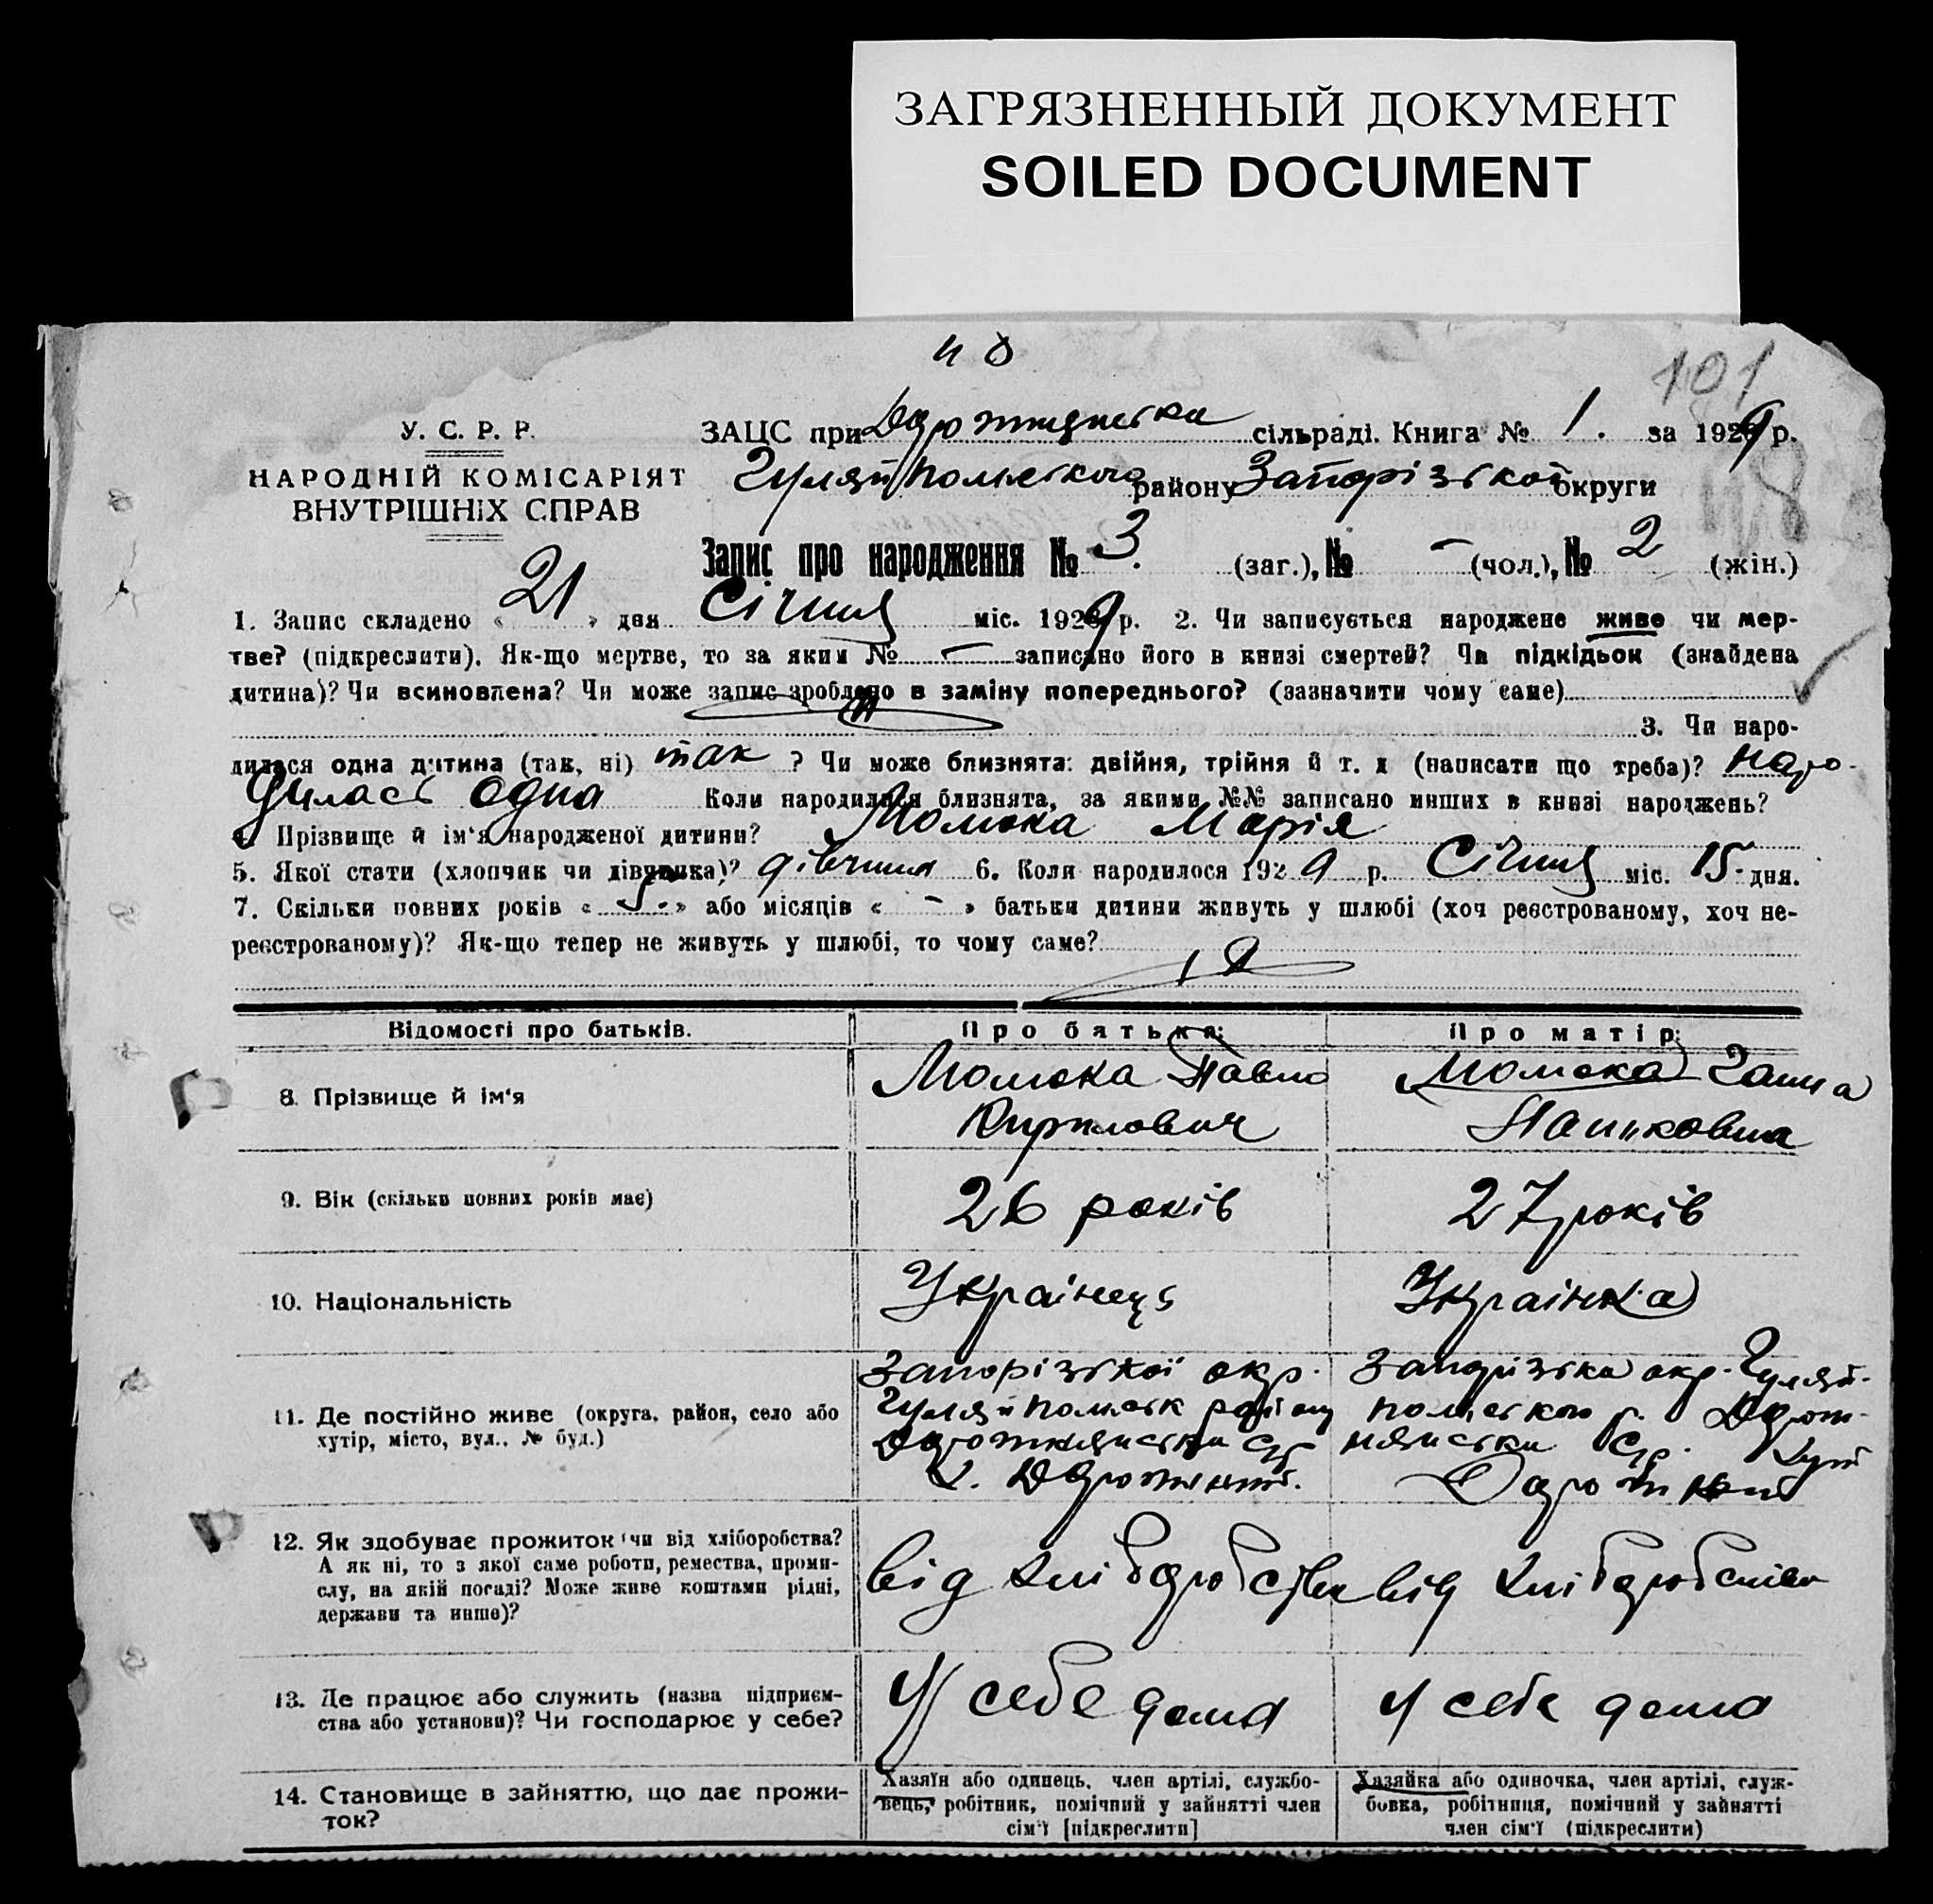 ЗАГРЯЗНЕННЫЙ ДОКУМЕНТ
SOILED DOCUMENT
101
У. С. Р. Р.
НАРОДНІЙ КОМІСАРІЯТ
ВНУТРІШНІХ СПРАВ
ЗАЦС при сільраді. Книга № 1. за 1929 р.
Гуляйпольського району Запорізької округи
Запис про народження № 3. (заг.), № – (чол.), № 2 (жін.)
1. Запис складено « 21 » дня Січня міс. 1929 р. 2. Чи записується народжене живе чи мер-
тве? (підкреслити). Як-що мертве, то за яким № – записано його в книзі смертей? Чи підкідьок (знайдена
дитина)? Чи всиновлена? Чи може запис зроблено в заміну попереднього? (зазначити чому саме)
3. Чи наро-
дилася одна дитина (так, ні) так ? Чи може близнята: двійня, трійня й т. д (написати що треба)? наро-
дилась одна Коли народилися близнята, за якими №№ записано инших в книзі народжень?
4. Прізвище й ім‘я народженої дитини? Момока Марія
5. Якої стати (хлопчик чи дівчинка)? дівчина 6. Коли народилося 1929 р. Січня міс. 15. дня.
7. Скільки повних років « 5. » або місяців « – » батьки дитини живуть у шлюбі (хоч реєстрованому, хоч не-
реєстрованому)? Як-що тепер не живуть у шлюбі, то чому саме?
Відомості про батьків. Про батька: Про матір:
8. Прізвище й ім‘я Момока Павло Момока Ганна
Кирилович
9. Вік (скільки повних років має) 26 років 27 років
10. Національність Українець Українка
11. Де постійно живе (округа, район, село або
хутір, місто, вул., № буд.)
Запорізької окр.
Гуляйпольськ району
Запорізька окр. Гуляй-
12. Як здобуває прожиток чи від хліборобства?
А як ні, то з якої саме роботи, ремества, проми-
слу, на якій посаді? Може живе коштами рідні,
держави та инше)?
від хліборобства від хліборобства
13. Де працює або служить (назва підприєм-
ства або установи)? Чи господарює у себе?
У себе дома у себе дома
14. Становище в зайняттю, що дає прожи-
ток?
Хазяїн або одинець, член артілі, службо-
вець, робітник, помічний у зайнятті член
сім‘ї [підкреслити]
Хазяйка або одиночка, член артілі, служ-
бовка, робітниця, помічний у зайнятті
член сім‘ї (підкреслити)